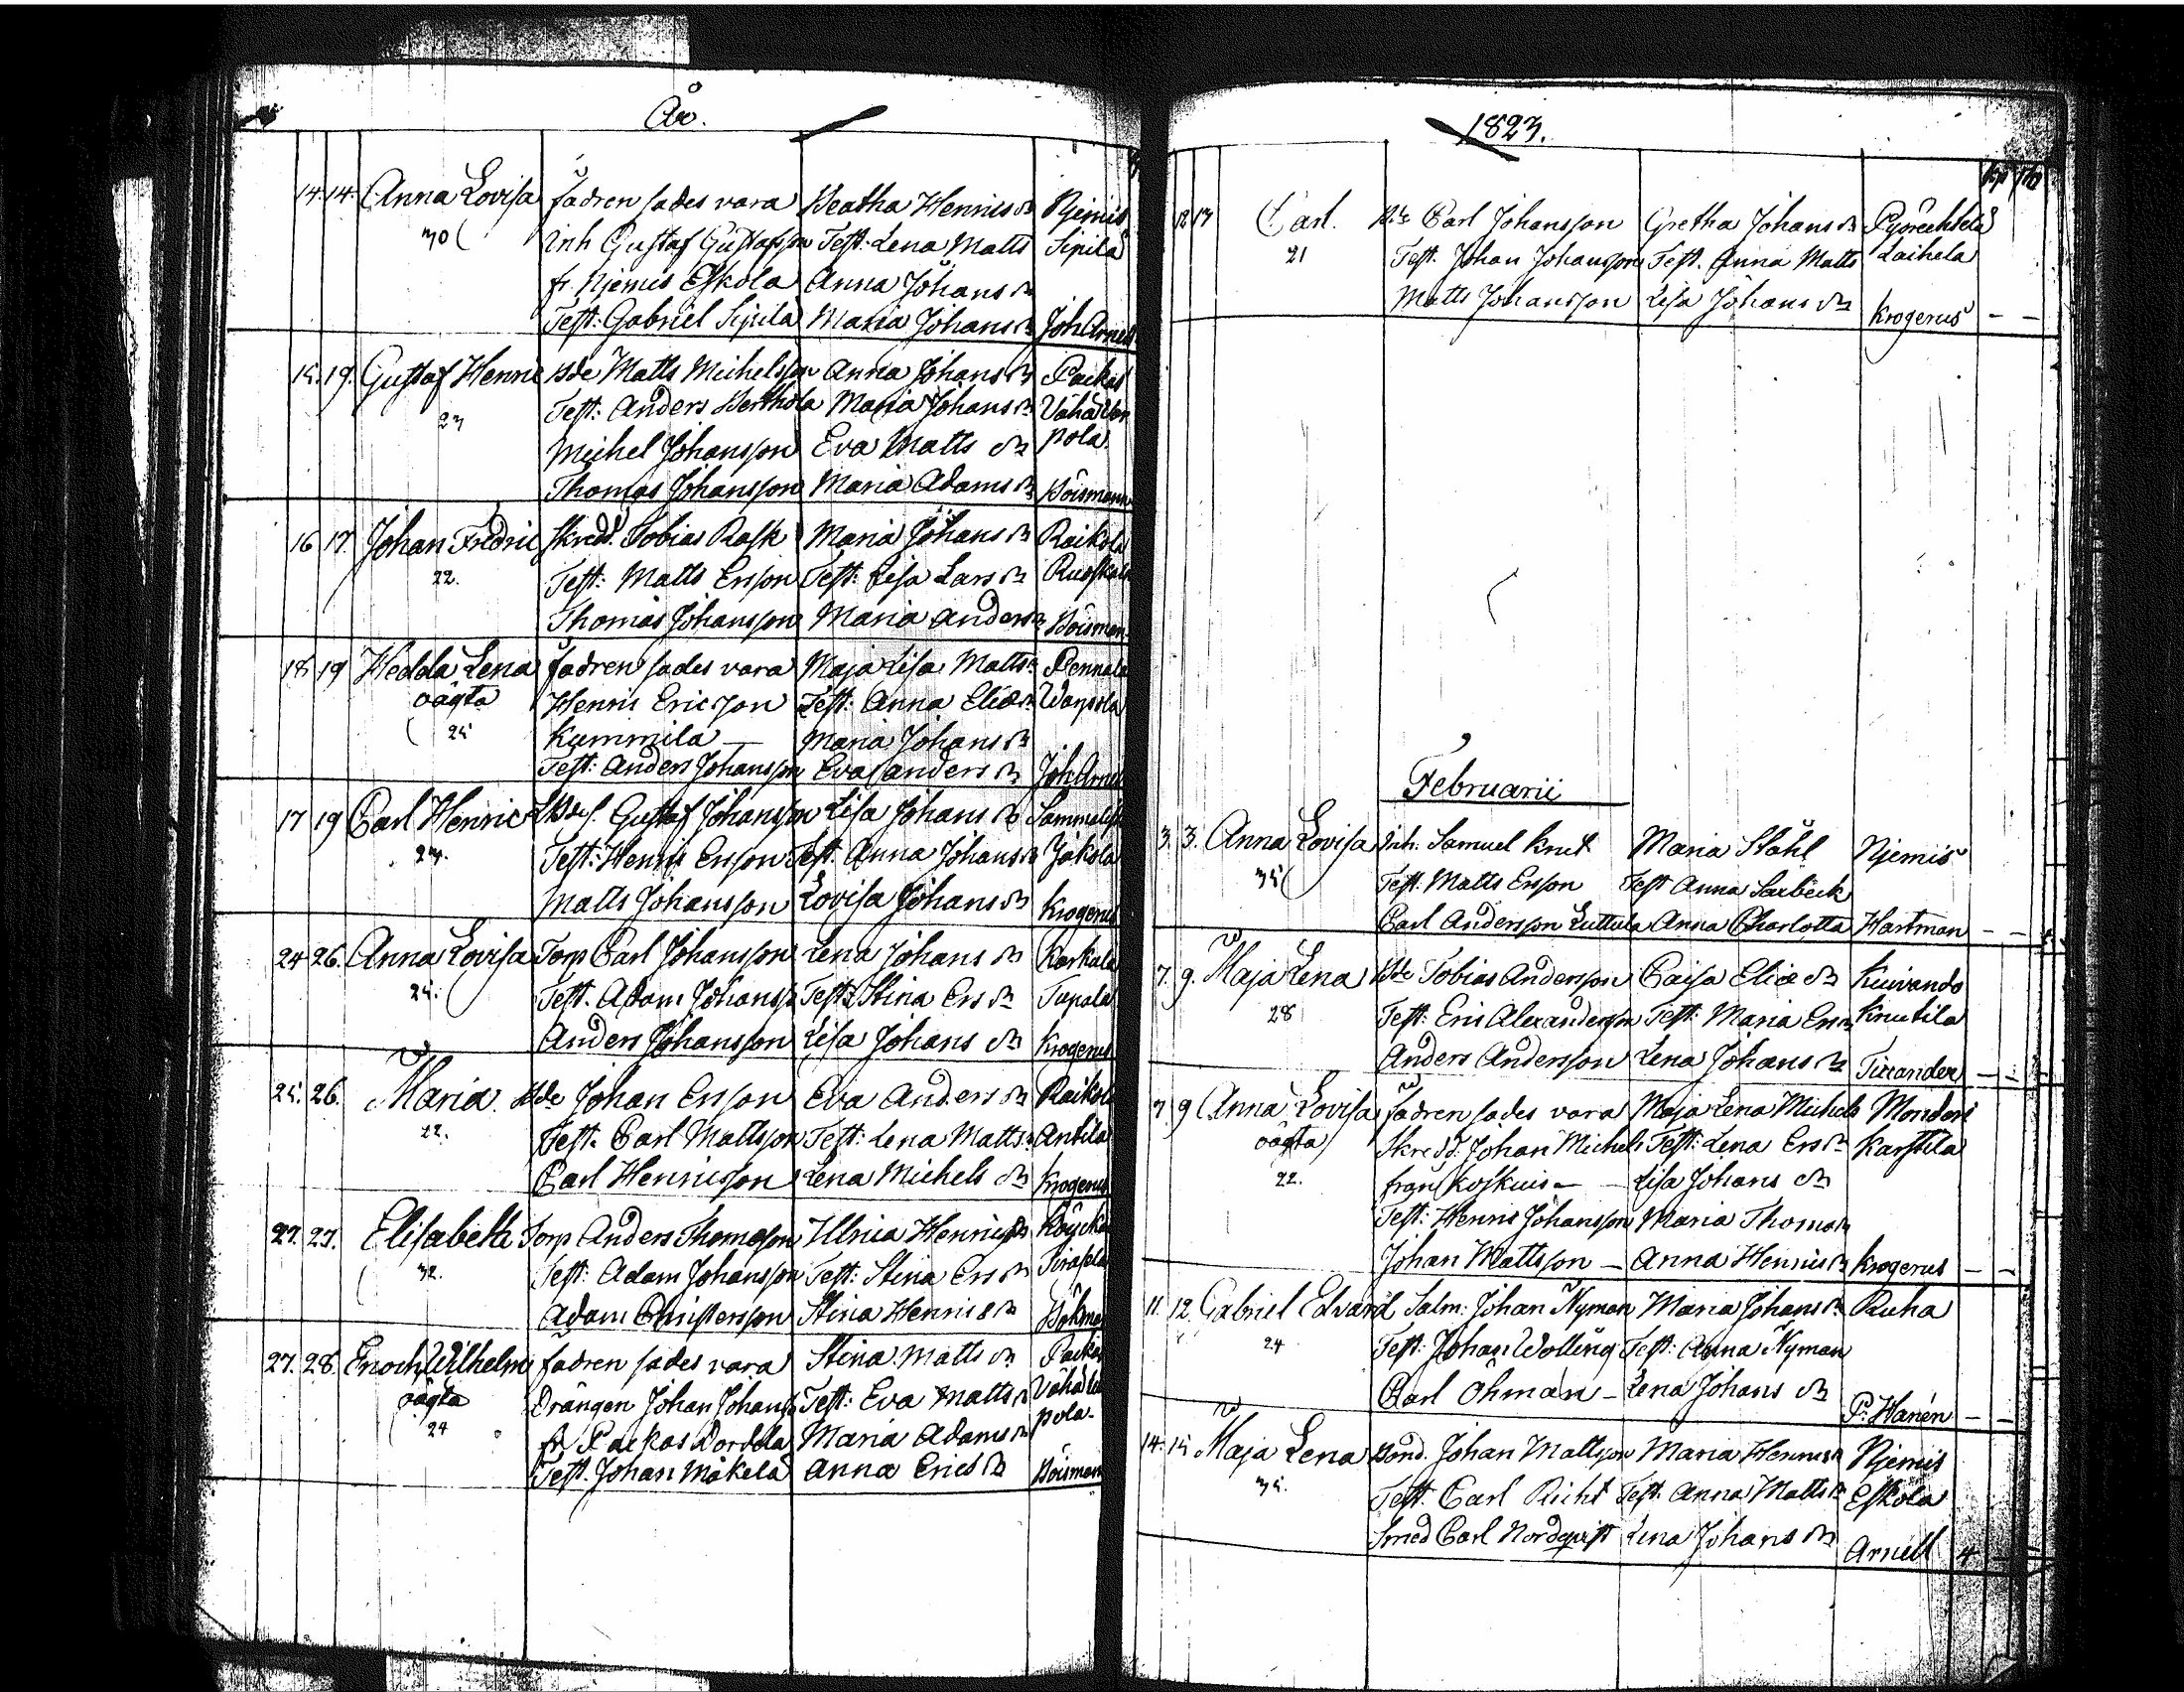 År.
14. 14. Anna Lovisa fadren sades vara Beatha Henrics dr Njemis
30 inh Gustaf Gustafsson Test: Lena Matts Sipilä
fr. Njemis Eskola Anna Johans dr
Test: Gabriel Sipilä Maria Johans dr Joh Arnell
15. 19. Gustaf Henric Bde Matts Michelsson Anna Johans dr Paikas
23 Test: Anders Berthola Maria Johans dr Vähä
Michel Johansson Eva Matts dr pola
Thomas Johansson Maria Adams dr Boisman
16 17. Johan Fredric Skredd. Tobias Rask Maria Johans dr Raikola
22. Test: Matts Ersson Test: Lisa Lars dr
Thomas Johansson Maria Anders dr Boisman
18 19 Hedda Lena fadren sades vara Maja Lisa Matts dr Pennala
oägta Henric Ericsson Test: Anna Elias dr
25 Kummila — Maria Johans dr
Test: Anders Johansson Eva Anders dr Joh Arnell
17 19 Carl Henric Gustaf Johansson Lisa Johans dr
Test: Henric Ersson Test. Anna Johans dr Jakola
Matts Johansson Lovisa Johans dr Krogerus
24 26. Anna Lovisa Torp Carl Johansson Lena Johans dr Karkala
25. Test. Adam Johanss Test: Stina Ers dr Tapala
Anders Johansson Lisa Johans dr Krogerus
25. 26. Maria. Bde Johan Ersson Eva Anders dr Raikola
22. Test. Carl Mattsson Test: Lena Matts dr Antila
Carl Henricsson Lena Michels dr Krogerus
27. 27. Elisabeth Torp Anders Thomasson Ulrica Henrics dr
32. Test: Adam Johansson Test: Stina Ers dr
Adam Christersson Stina Henrics dr
27. 28. Enoch Wilhelm fadren sades vara Stina Matts dr Paikas
oägta Drängen Johan Johans Test: Eva Matts dr Vähä
24 fr Paikas Maria Adams dr pola
Test. Johan Mäkelä Anna Erics dr Boisman
1823.
12 13 Carl. Bde Carl Johansson Gretha Johans dr
21 Test. Johan Johansson Test. Anna Matts Laihela
Matts Johansson Lisa Johans dr Krogerus — —
Februarii
3. 3. Anna Lovisa Inh. Samuel Knut Maria Ståhl Njemis
35 Test. Matts Ersson Test Anna
Carl Andersson Luttula Anna Charlotta Hartman — —
7. 9. Maja Lena Bde Tobias Andersson Caisa Elias dr Kuivando
28 Test: Eric Alexandersson Test: Maria Ers dr Knutila
Anders Andersson Lena Johans dr — —
7. 9 Anna Lovisa fadren sades vara Maja Lena Michels
oägta Skredd. Johan Michels Test: Lena Ers dr Karstila
22. från Koskuis — Lisa Johans dr
Test: Henric Johansson Maria Thomas dr
Johan Mattsson — Anna Henrics dr Krogerus — —
11. 12. Gabriel Edvard Salm: Johan Nyman Maria Johans dr Ruha
24 Test: Johan Test: Anna Nyman
Carl Öhman — Lena Johans dr P: Hanén — —
14. 15 Maja Lena Bond. Johan Mattsson Maria Henrics dr Njemis
35. Test. Carl Richt Test. Anna Matts dr Eskola
Smed Carl Nordqvist Lena Johans dr Arnell 4 —